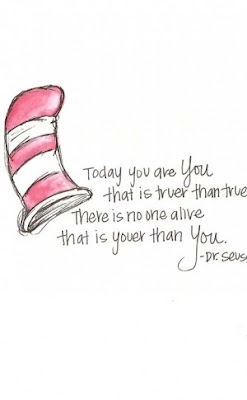 Today you are You
that is truer than true
There is no one alive
that is youer than You.
-Dr. Seuss